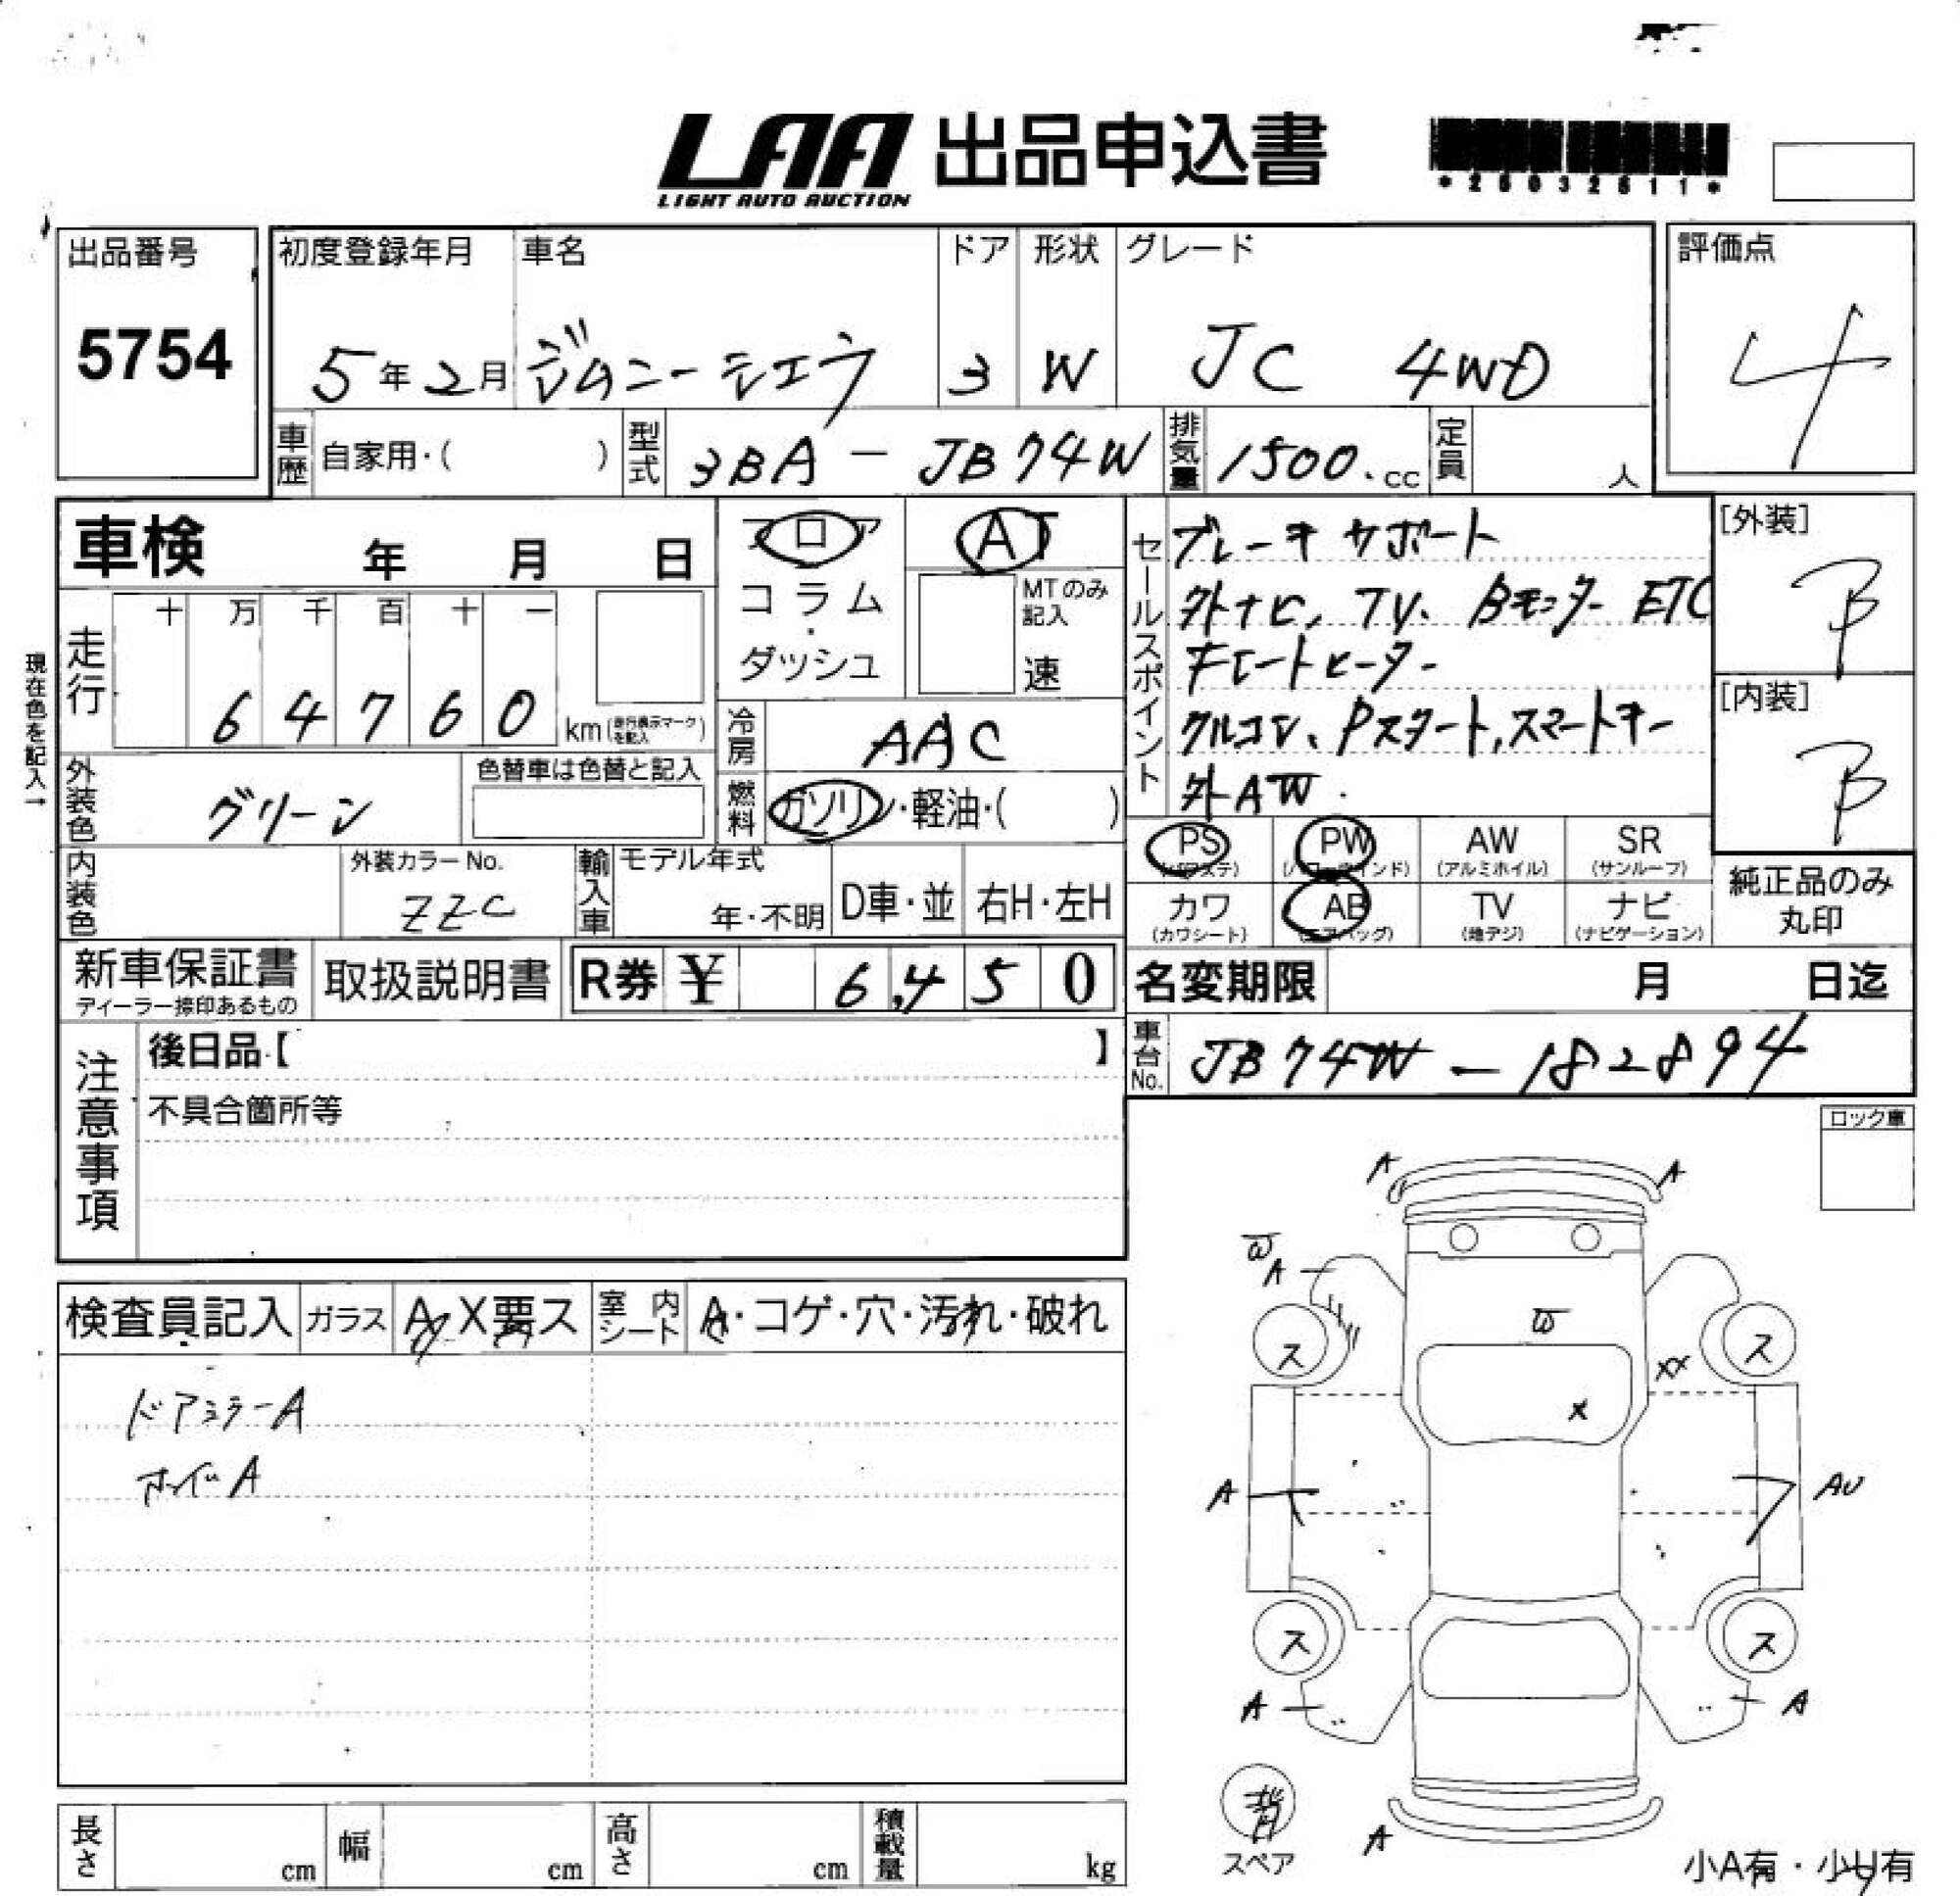 LAA 出品申込書
LIGHT AUTO AUCTION
*25032611*
出品番号
5754
初度登録年月 車名 ドア 形状 グレード
5年2月 ジムニーシエラ 3 W JC 4WD
評価点
4
車歴 自家用・( ) 型式 3BA - JB74W 排気量 1500.cc 定員 人
車検 年 月 日
フロア AT
コラム・ダッシュ MTのみ記入 速
走行 十 万 千 百 十 一
6 4 7 6 0 km(走行表示マークを記入)
現在色を記入→
冷房 AAC
外装色 グリーン 色替車は色替と記入
燃料 ガソリン・軽油・( )
内装色 外装カラーNo. ZZC
輸入車 モデル年式 年・不明 D車・並 右H・左H
セールスポイント
ブレーキサポート
外ナビ, TV、Bモニター ETC
シートヒーター
クルコン、Pスタート,スマートキー
外AW.
[外装]
B
[内装]
B
PS(パワステ) PW(パワーウインド) AW(アルミホイル) SR(サンルーフ)
カワ(カワシート) AB(エアバッグ) TV(地デジ) ナビ(ナビゲーション)
純正品のみ丸印
新車保証書 ディーラー捺印あるもの 取扱説明書 R券 ¥ 6,450
名変期限 月 日迄
車台No. JB74W-182894
注意事項
後日品【 】
不具合箇所等
ロック車
検査員記入 ガラス A X要ス 室内シート A・コゲ・穴・汚れ・破れ
ドアミラーA
ホイルA
A A
W
A
W
ス ス
XX
X
A AU
ス ス
A A
スペア
A
小A有・少U有
長さ cm 幅 cm 高さ cm 積載量 kg